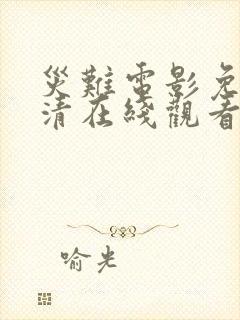 災難電影免
清在綫觀看
喻光